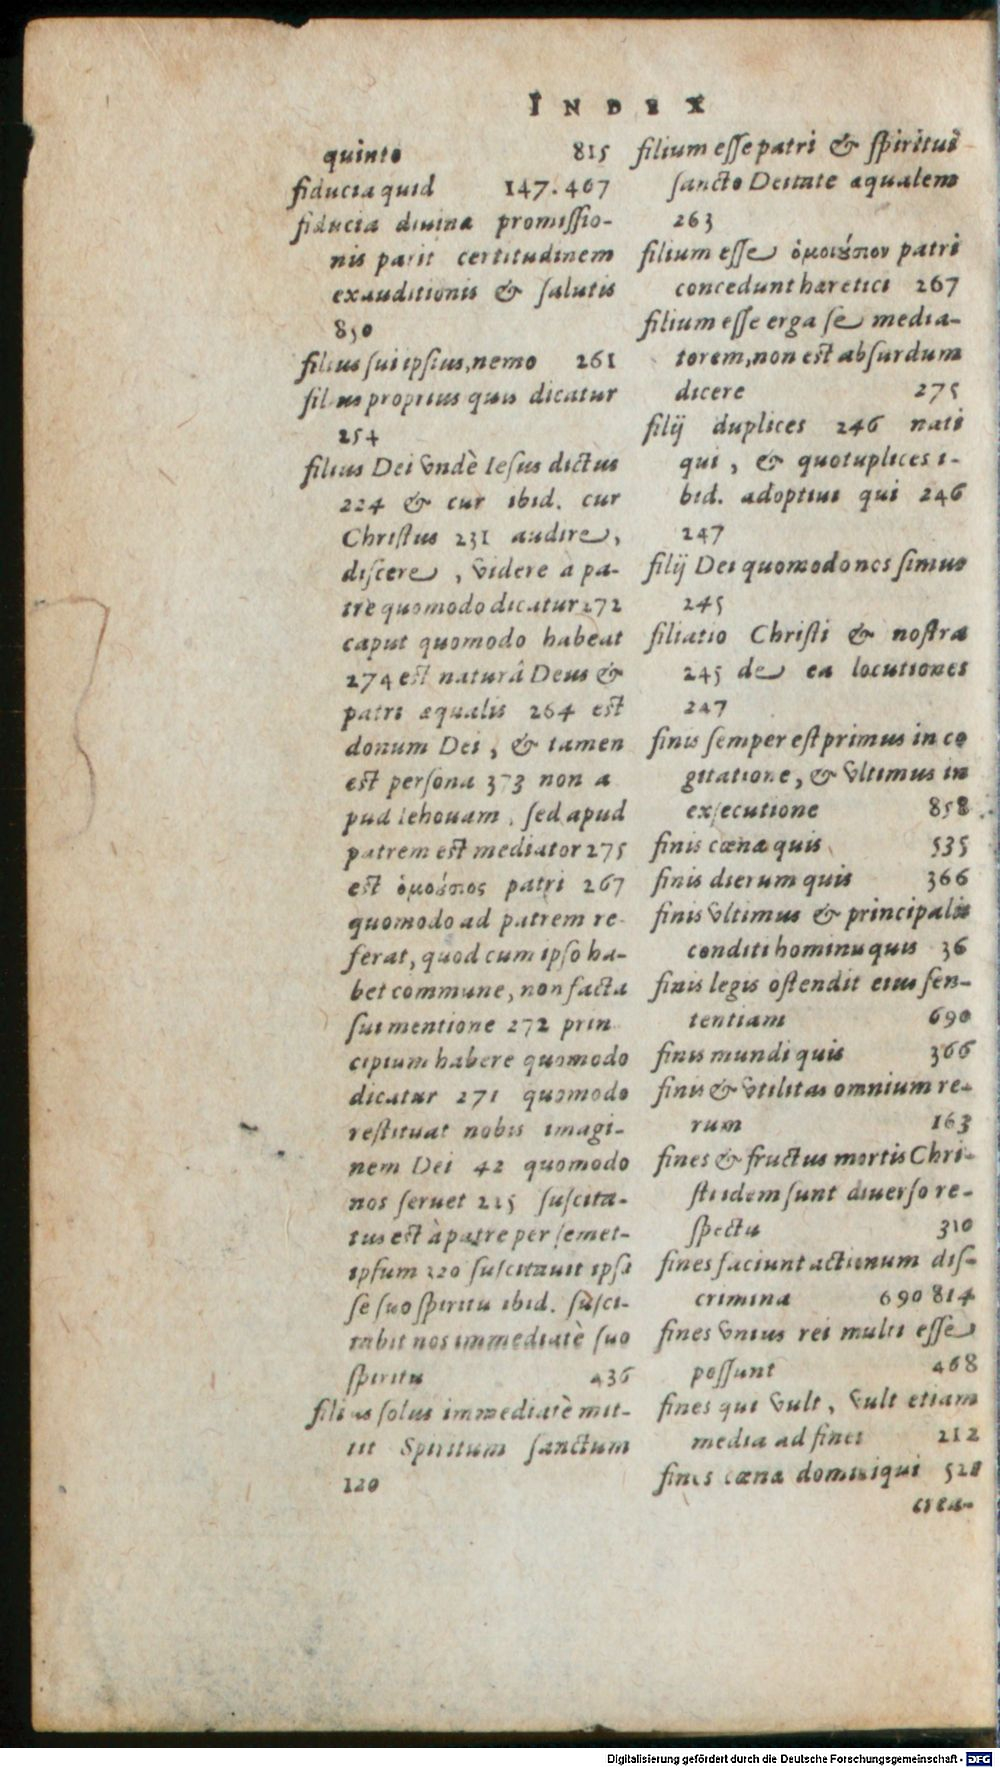 INDEX
quinto 815
fiducia quid 147. 467
fiducia diuina promissio-
nis parit certitudinem
exauditionis & salutis
850
filius sui ipsius, nemo 261
filius proprius quis dicatur
254
filius Dei vndè Iesus dictus
224 & cur ibid. cur
Christus 231 audire,
discere, videre à pa-
tre quomodo dicatur 272
caput quomodo habeat
274 est naturâ Deus &
patri æqualis 264 est
donum Dei, & tamen
est persona 373 non a
pud Iehouam, sed apud
patrem est mediator 275
est ὁμοούσιος patri 267
quomodo ad patrem re
ferat, quod cum ipso ha-
bet commune, non facta
sui mentione 272 prin
cipium habere quomodo
dicatur 271 quomodo
restituat nobis imagi-
nem Dei 42 quomodo
nos seruet 225 suscita-
tus est à patre per semet-
ipsum 220 suscitauit ipse
se suo spiritu ibid. susci-
tabit nos immediatè suo
spiritu 436
filius solus immediatè mit-
tit Spiritum sanctum
120
filium esse patri & spiritui
sancto Deitate æqualem
263
filium esse ὁμοιούσιον patri
concedunt hæretici 267
filium esse erga se media-
torem, non est absurdum
dicere 275
filij duplices 246 nati
qui, & quotuplices i-
bid. adoptiui qui 246
247
filij Dei quomodo nos simus
245
filiatio Christi & nostra
245 de ea locutiones
247
finis semper est primus in co
gitatione, & vltimus in
exsecutione 858
finis cœnæ quis 535
finis dierum quis 366
finis vltimus & principalis
conditi hominis quis 36
finis legis ostendit eius sen-
tentiam 690
finis mundi quis 366
finis & vtilitas omnium re-
rum 163
fines & fructus mortis Chri-
sti idem sunt diuerso re-
spectu 310
fines faciunt actionum dis-
crimina 690 814
fines vnius rei multi esse
possunt 468
fines qui vult, vult etiam
media ad fines 212
fines cœnæ domini qui 528
crea-
Digitalisierung gefördert durch die Deutsche Forschungsgemeinschaft - DFG